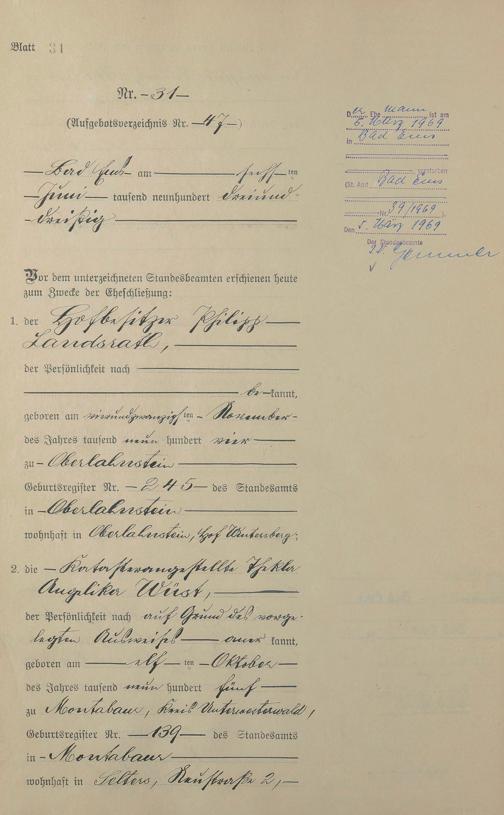 Blatt 31
Nr. - 31 -
(Aufgebotsverzeichnis Nr. - 47 -)
Bad Ems am sechsten
Juni tausend neunhundert dreiund-
dreißig
Vor dem unterzeichneten Standesbeamten erschienen heute
zum Zwecke der Eheschließung:
1. der Hofbesitzer Philipp
Landsrath,
der Persönlichkeit nach
be kannt,
geboren am vierundzwanzigsten November
des Jahres tausend neun hundert vier
zu Oberlahnstein
Geburtsregister Nr. - 245 - des Standesamts
in Oberlahnstein
wohnhaft in Oberlahnstein, Hof Wintersberg;
2. die Katasterangestellte Thekla
Angelika Wüst,
der Persönlichkeit nach auf Grund des vorge-
legten Ausweises aner kannt,
geboren am elf ten Oktober
des Jahres tausend neun hundert fünf
zu Montabaur, Kreis Unterwesterwald,
Geburtsregister Nr. - 139 - des Standesamts
in - Montabaur
wohnhaft in Selters, Neustraße 2,
Ehemann ist am
5. März 1969
in Bad Ems
verstorben
(St. Amt Bad Ems
Nr. 39/1969
Den 5. März 1969
Der Standesbeamte